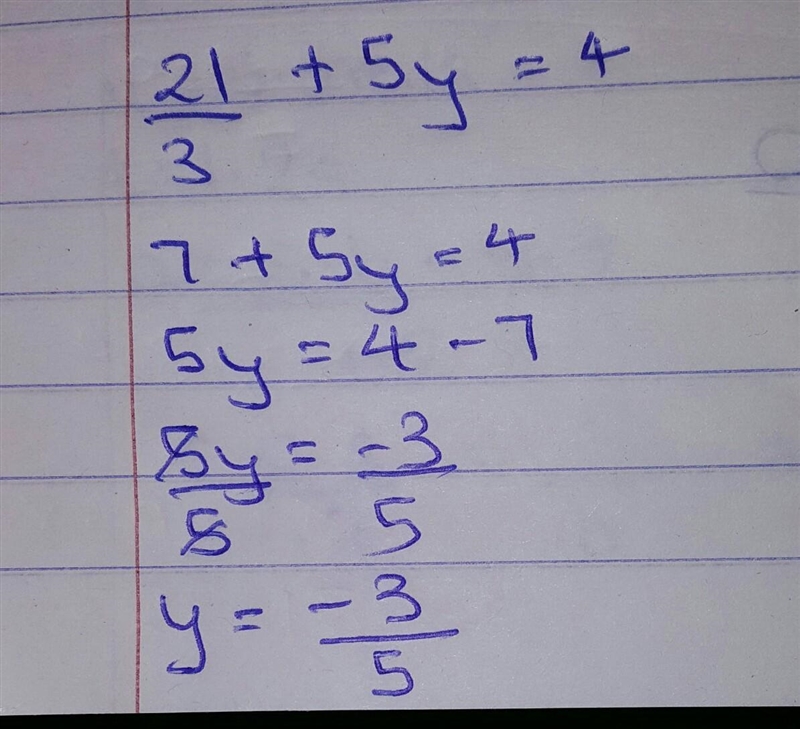 21/3 + 5y = 4
7 + 5y = 4
5y = 4 - 7
5y/5 = -3/5
y = -3/5